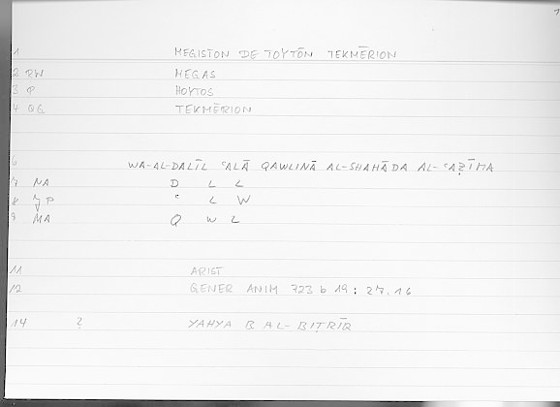 1 MEGISTON DE TOYTŌN TEKMĒRION
2 PW MEGAS
3 P HOYTOS
4 QG TEKMĒRION
6 WA-AL-DALĪL ʿALĀ QAWLINĀ AL-SHAHĀDA AL-ʿAẒĪMA
7 NA D L L
8 P ʿ L W
9 MA Q W L
11 ARIST
12 GENER ANIM. 723 b 19 : 27.16
14 ? YAHYA B AL-BIṬRĪQ